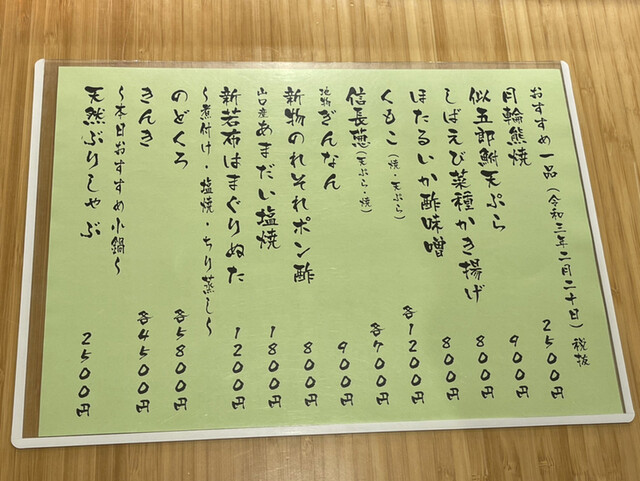 おすすめ一品(令和三年二月二十日) 税抜
月輪熊焼 2500円
似五郎鮒天ぷら 900円
しばえび菜種かき揚げ 800円
ほたるいか酢味噌 800円
くもこ(焼・天ぷら) 各1200円
信長葱(天ぷら・焼) 各700円
地物ぎんなん 900円
新物のれそれポン酢 800円
山口産あまだい塩焼 1800円
新若布はまぐりぬた 1200円
~煮付け・塩焼・ちり蒸し~
のどくろ 各5800円
きんき 各4500円
~本日おすすめ小鍋~
天然ぶりしゃぶ 2500円